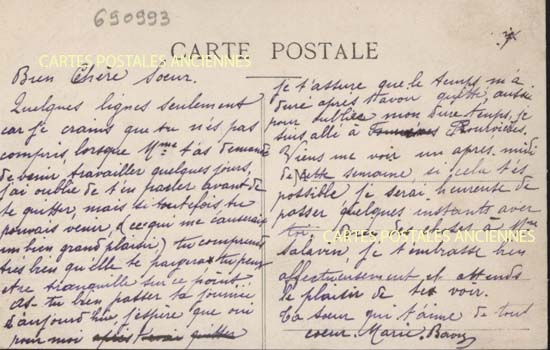 690993
CARTES POSTALES ANCIENNES
CARTE POSTALE
Bien Chère Soeur.
Quelques lignes seulement
car je crains que tu n'es pas
compris, lorsque Mme t'as demandé
de venir travailler quelques jours,
j'ai oublié de t'en parler avant de
te quitter, mais si toutefois tu
pouvais venir, (ce qui me causerais
un bien grand plaisir) tu comprends
très bien qu'elle te payeras tu peux
être tranquille sur ce point.
As-tu bien passer ta journée
d'aujourd'hui, j'espère que oui
pour moi
je t'assure que le temps m'a
duré après t'avoir quitté, aussi
pour oublier mon temps, je
suis allé à Fourvières.
Viens me voir un après-midi
de cette semaine, si cela t'es
possible je serai heureuse de
passer quelques instants avec
toi,
CARTES POSTALES ANCIENNES
Salavin, je t'embrasse bien
affectueusement et attends
le plaisir de te voir.
Ta soeur qui t'aime de tout
coeur. Marie